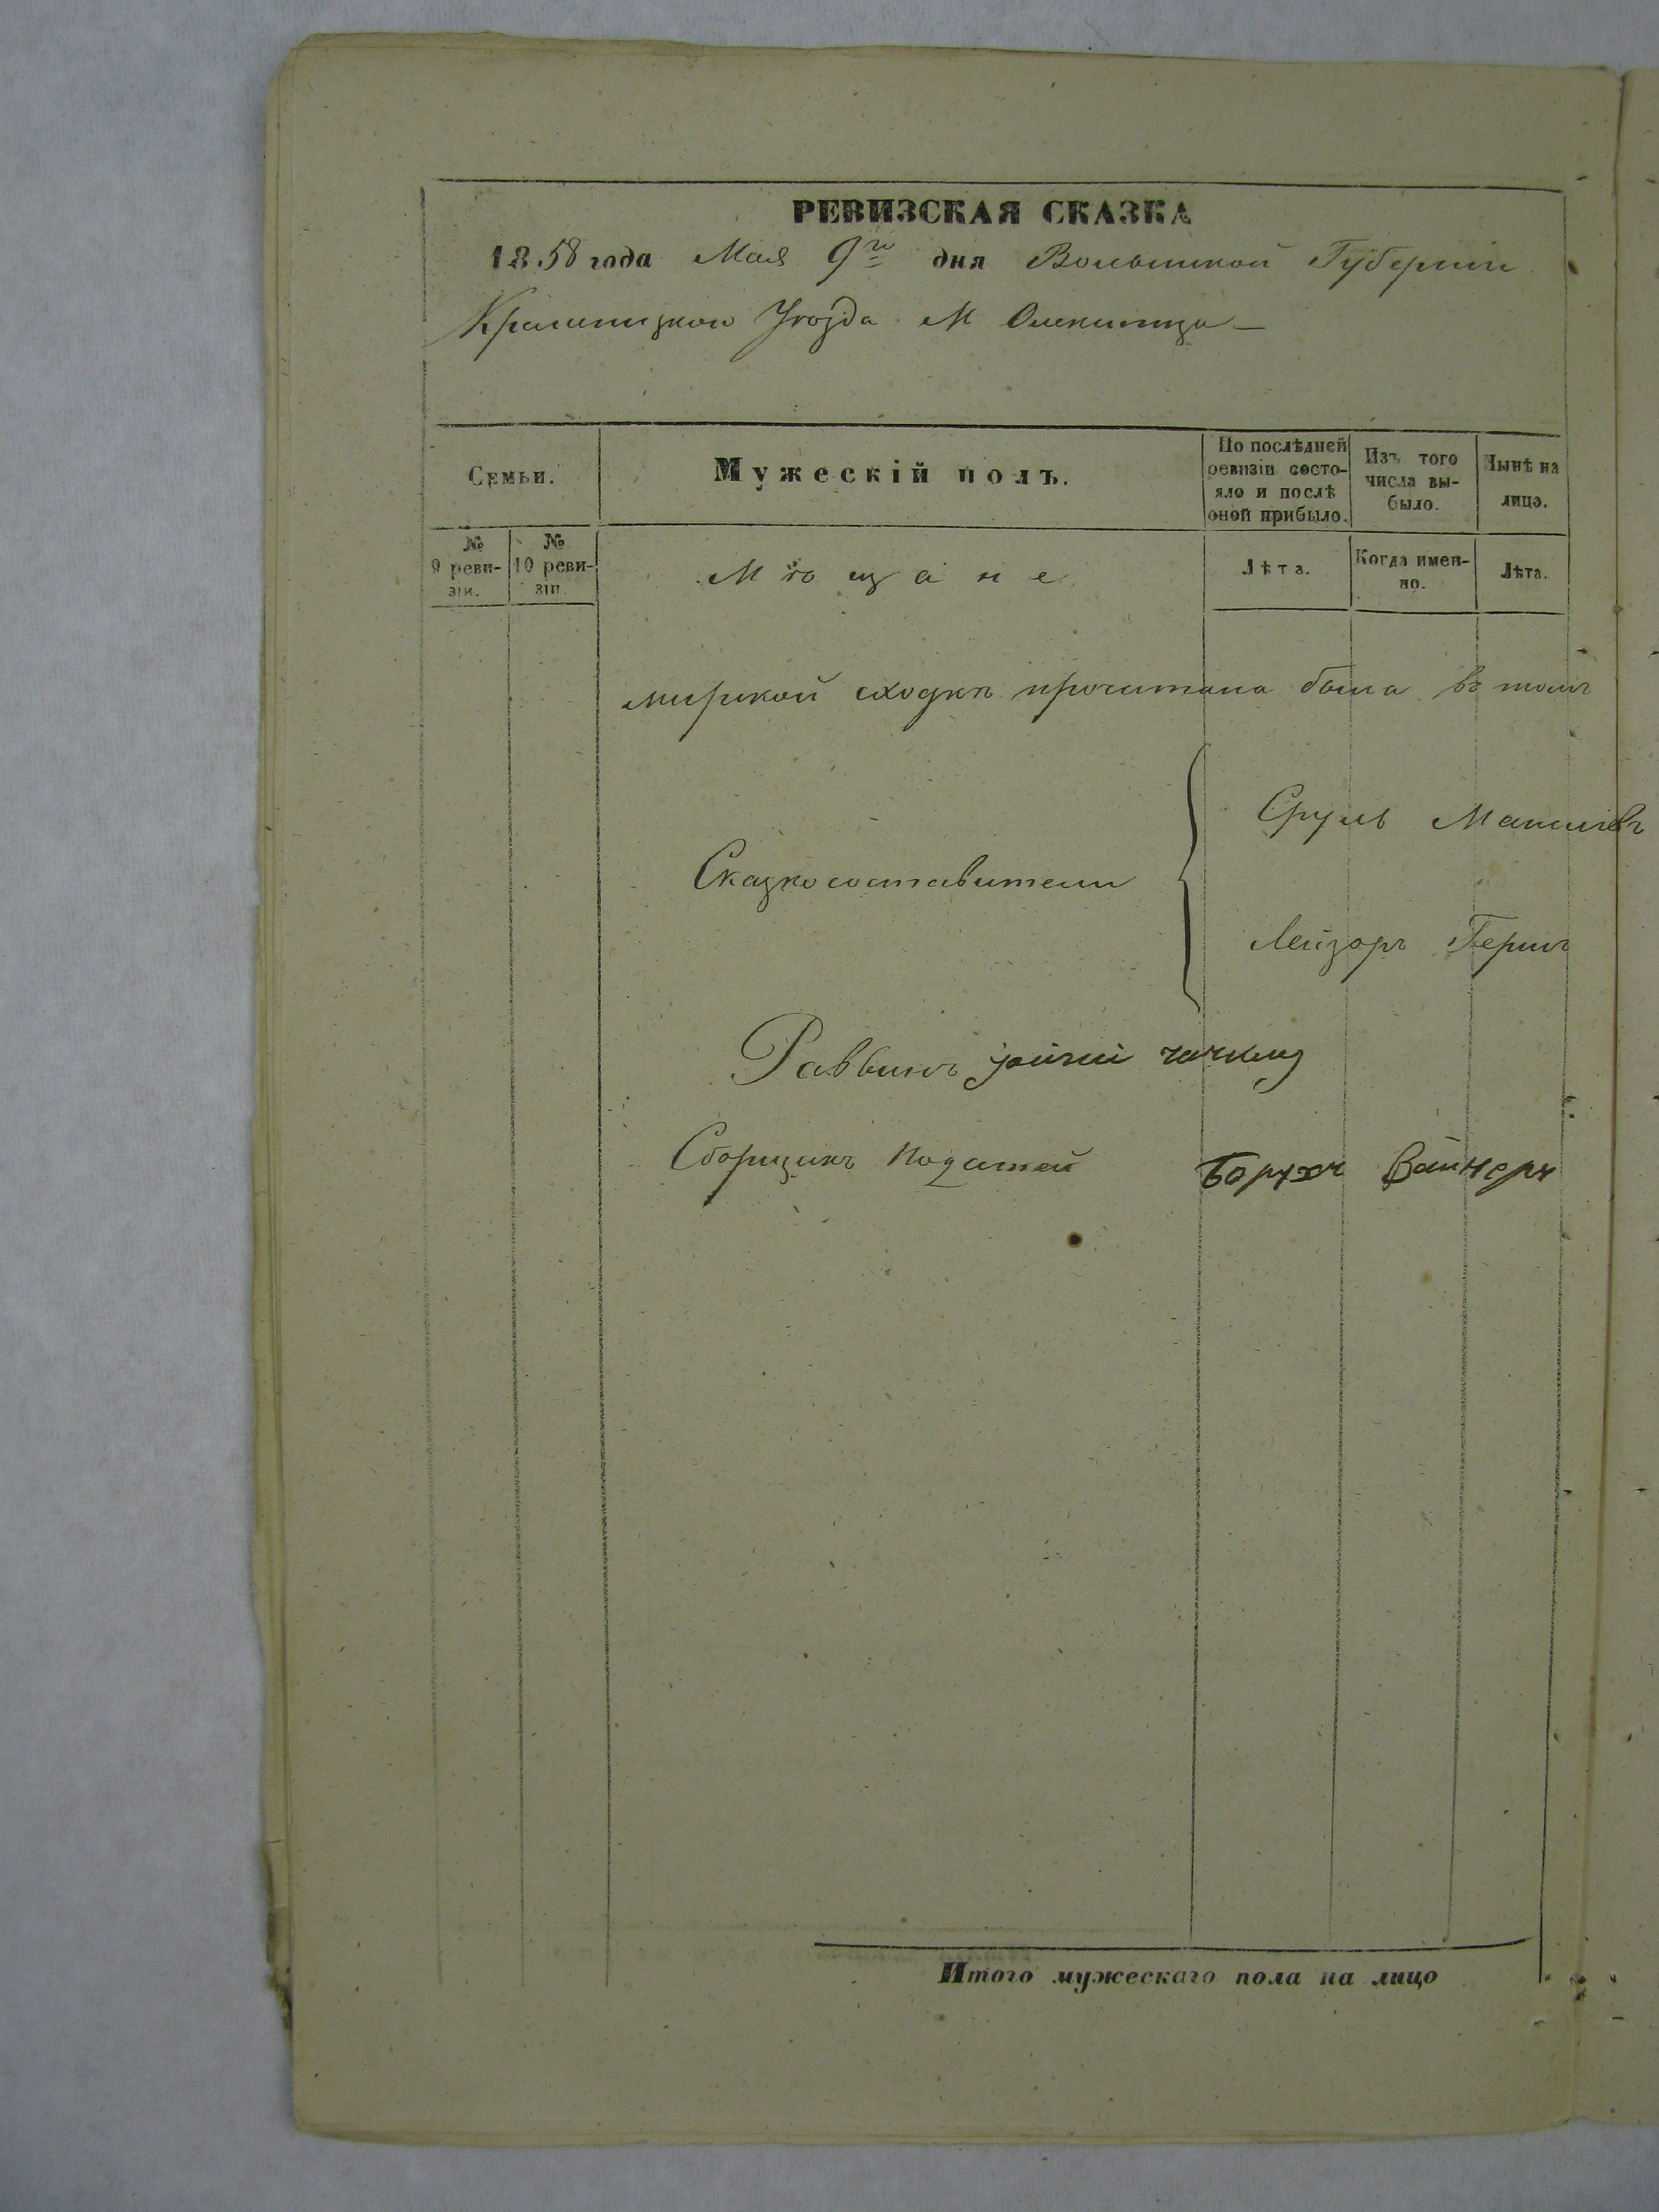 РЕВИЗСКАЯ СКАЗКА
1858 года Мая 9го дня Волынской Губерніи
Кременецкого Уѣзда М Олексинца
Семьи.
Мужескій полъ.
По послѣдней ревизіи состо-
яло и послѣ
оной прибыло.
Изъ того
числа вы-
было.
Нынѣ на
лицо.
№
9 реви-
зіи.
№
10 реви-
зіи.
Мѣщане
Лѣта.
Когда имен-
но.
Лѣта.
мирской сходкѣ прочитана была въ томъ
Сказкосоставители
Сруль
Лейзоръ Герш
Раввинъ
Сборщикъ Податей Борухъ Вайнеръ
Итого мужескаго пола на лицо